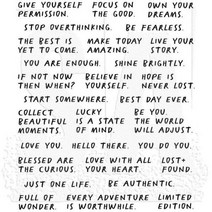 GIVE YOURSELF PERMISSION.
FOCUS ON THE GOOD.
OWN YOUR DREAMS.
STOP OVERTHINKING.
BE FEARLESS.
THE BEST IS YET TO COME.
MAKE TODAY AMAZING.
LIVE YOUR STORY.
YOU ARE ENOUGH.
SHINE BRIGHTLY.
IF NOT NOW THEN WHEN?
BELIEVE IN YOURSELF.
HOPE IS NEVER LOST.
START SOMEWHERE.
BEST DAY EVER.
COLLECT BEAUTIFUL MOMENTS.
LUCKY IS A STATE OF MIND.
BE YOU. THE WORLD WILL ADJUST.
LOVE YOU.
HELLO THERE.
YOU DO YOU.
BLESSED ARE THE CURIOUS.
LOVE WITH ALL YOUR HEART.
LOST+ FOUND.
JUST ONE LIFE.
BE AUTHENTIC.
FULL OF WONDER.
EVERY ADVENTURE IS WORTHWHILE.
LIMITED EDITION.